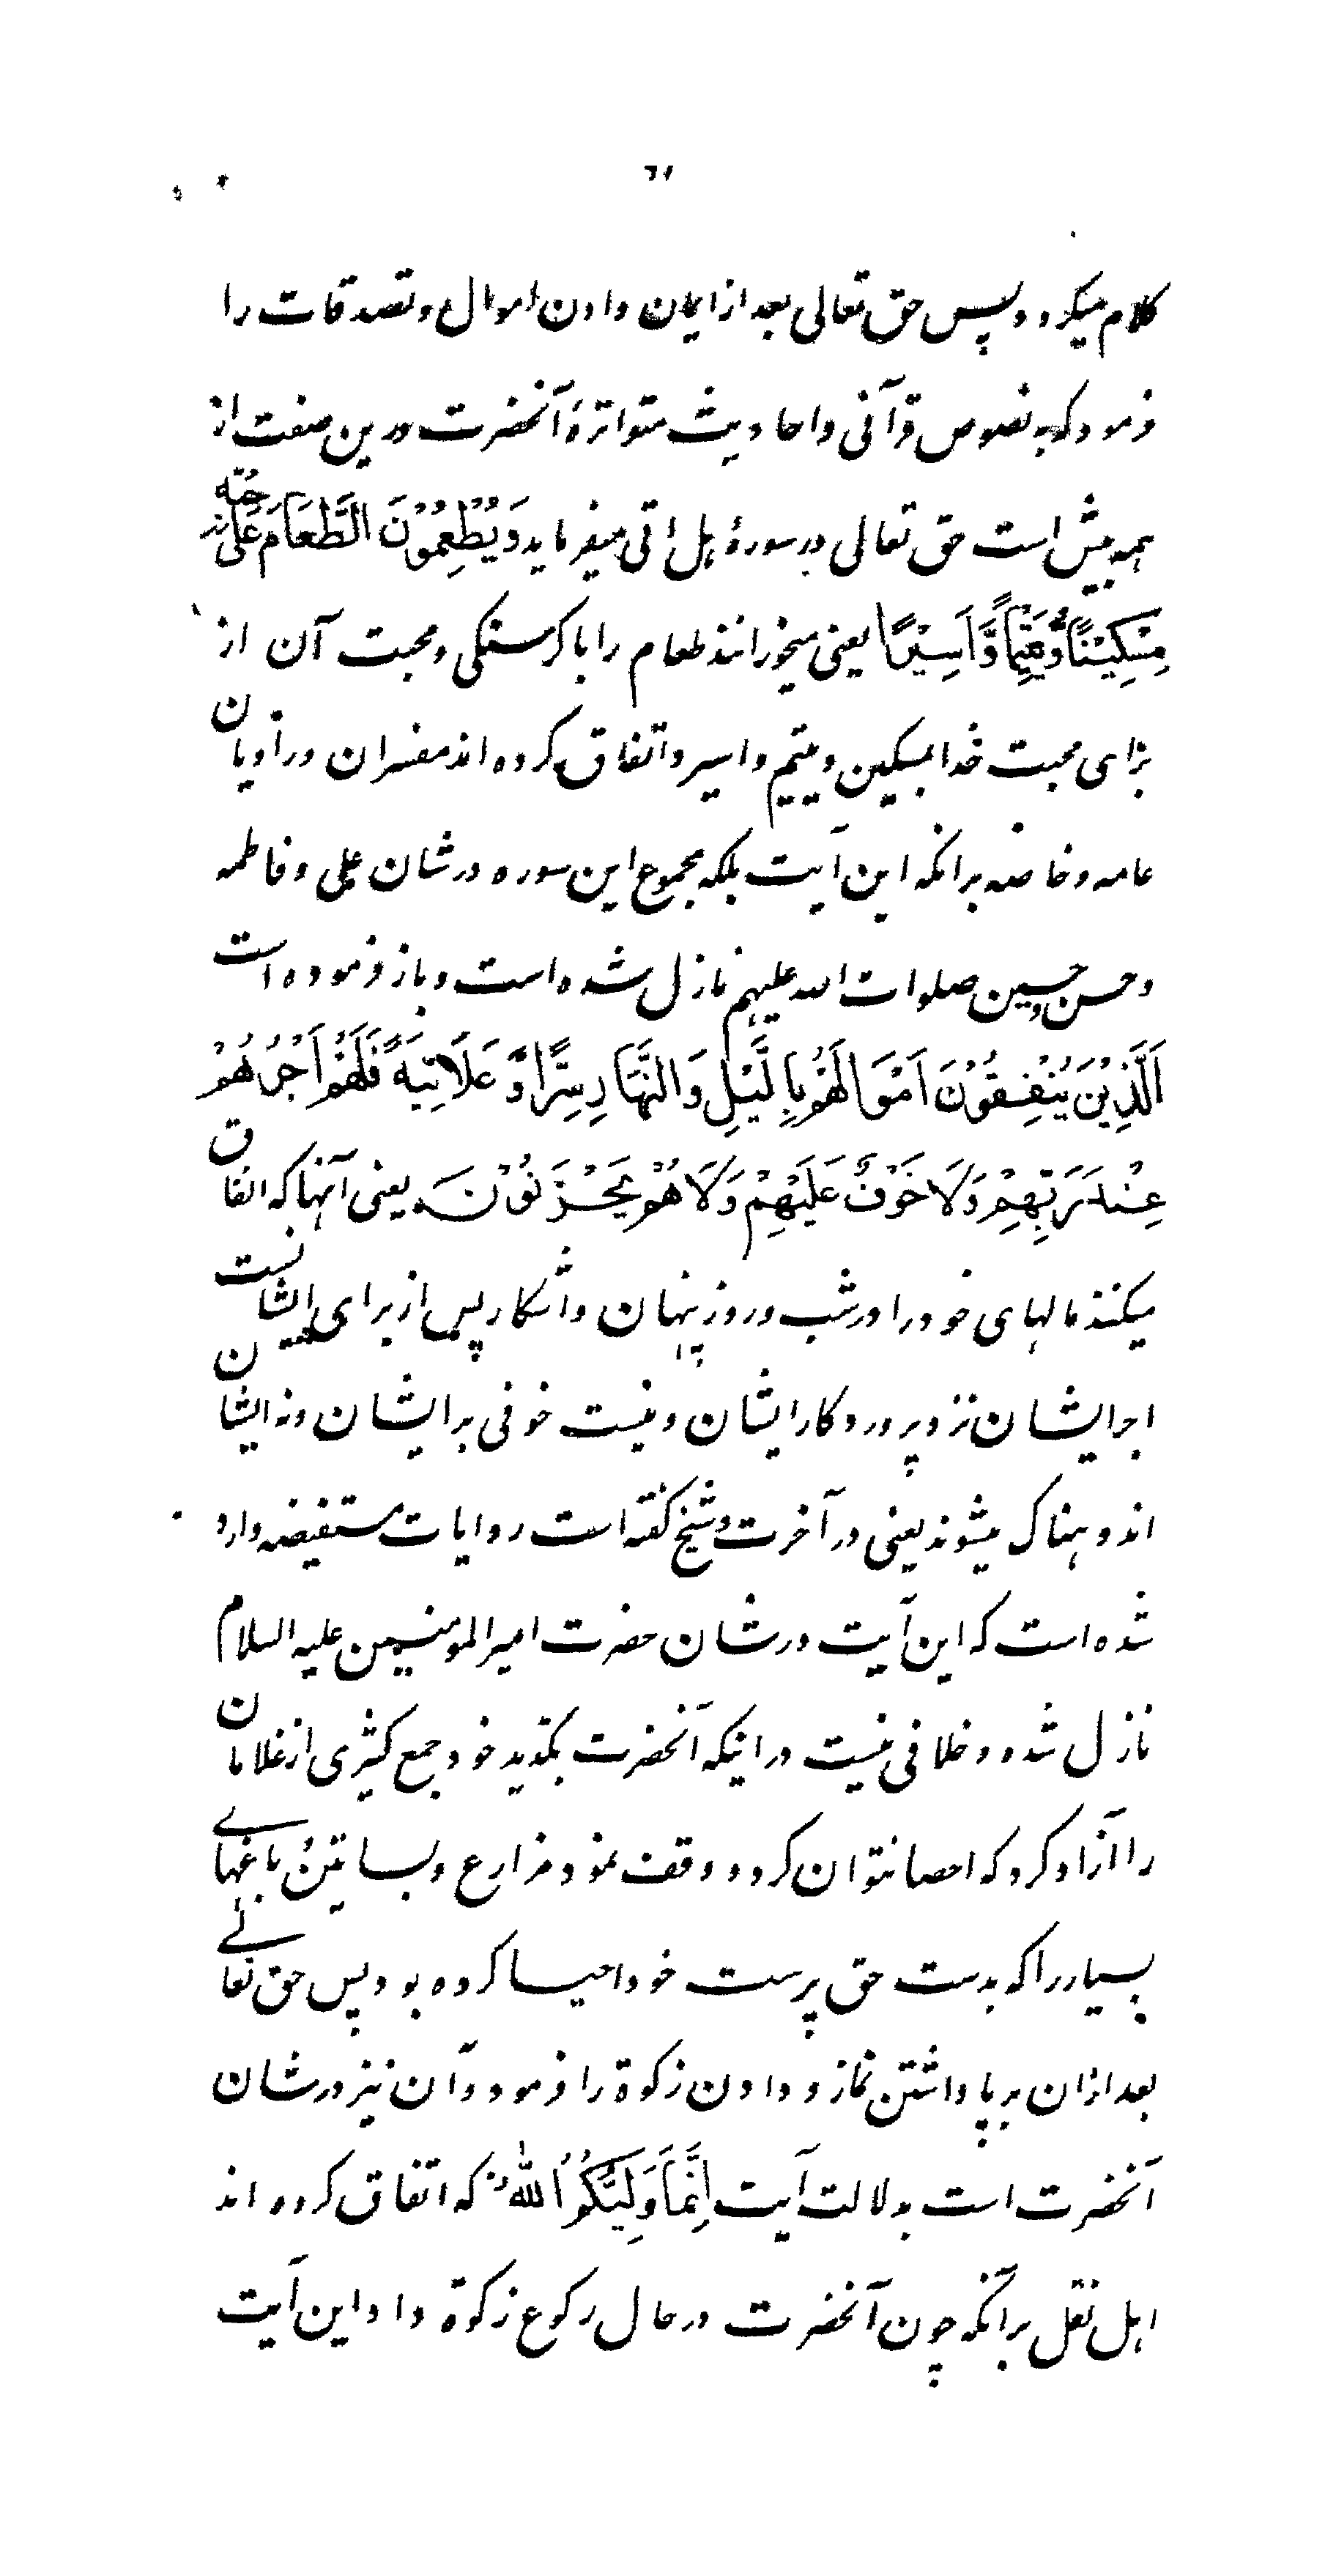 ۶۱
کلام میکرد و پس حق تعالی بعد از ایمان دادن اموال و تصدقات را
فرمود که به نصوص قرآنی و احادیث متواترهٔ آنحضرت درین صفت از
همه بیش است حق تعالی در سورهٔ هل اتی میفرماید وَيُطْعِمُوْنَ الطَّعَامَ عَلٰى حُبِّهٖ
مِسْكِيْنًا وَّيَتِيْمًا وَّاَسِيْرًا یعنی میخورانند طعام را با گرسنگی و محبت آن از
برای محبت خدا بمسکین و یتیم و اسیر و اتفاق کرده اند مفسران و راویان
عامه و خاصه برانکه این آیت بلکه مجموع این سوره در شان علی و فاطمه
و حسن و حسین صلوات الله علیهم نازل شده است و باز فرموده است
اَلَّذِيْنَ يُنْفِقُوْنَ اَمْوَالَهُمْ بِالَّيْلِ وَالنَّهَارِ سِرًّا وَّعَلَانِيَةً فَلَهُمْ اَجْرُهُمْ
عِنْدَ رَبِّهِمْ وَلَا خَوْفٌ عَلَيْهِمْ وَلَا هُمْ يَحْزَنُوْنَ یعنی آنها که انفاق
میکنند مالهای خود را در شب و روز پنهان و آشکار پس از برای ایشانست
اجر ایشان نزد پروردکار ایشان و نیست خوفی بر ایشان و نه ایشان
اندوهناک میشوند یعنی در آخرت و شیخ گفته است روایات مستفیضه وارد
شده است که این آیت در شان حضرت امیر المومنین علیه السلام
نازل شده و خلافی نیست در اینکه آنحضرت بکدید خود جمع کثیری از غلامان
را آزاد کرد که احصا نتوان کرد و وقف نمود مزارع و بساتین و باغهاے
بسیار را که بدست حق پرست خود احیا کرده بود پس حق تعالے
بعد ازان برپا داشتن نماز و دادن زکوة را فرمود و آن نیز در شان
آنحضرت است بدلالت آیت اِنَّمَا وَلِيُّكُمُ اللّٰهُ که اتفاق کرده اند
اهل نقل بر آنکه چون آنحضرت در حال رکوع زکوة داد این آیت